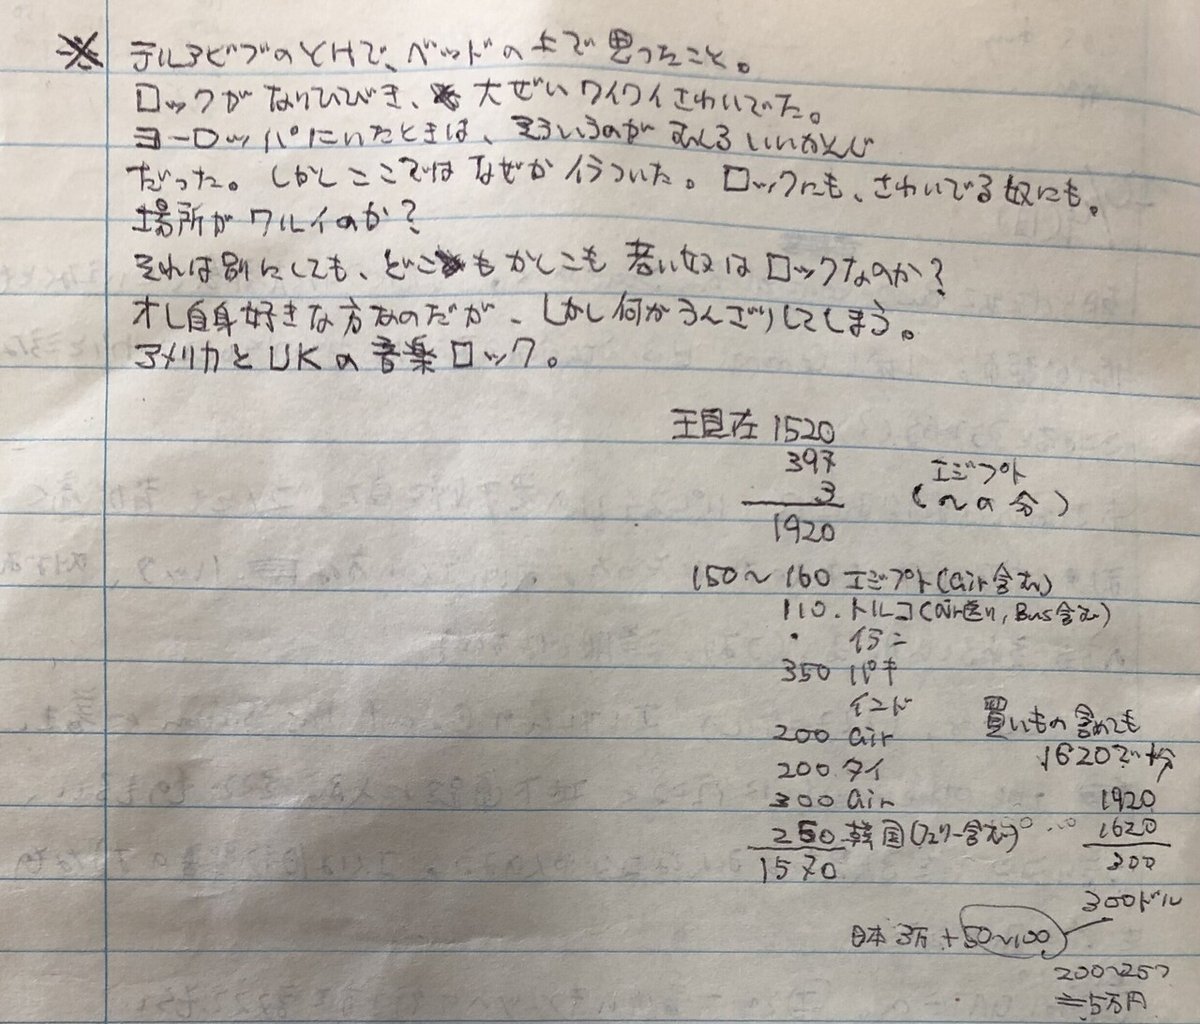 ※ テルアビブのYHで、ベッドの上で思ったこと。
ロックがなりひびき、大ぜいワイワイさわいでた。
ヨーロッパにいたときは、そういうのがむしろいいかんじ
だった。しかしここではなぜかイラついた。ロックにも、さわいでる奴にも。
場所がワルイのか?
それは別にしても、どこもかしこも若い奴はロックなのか?
オレ自身好きな方なのだが、しかし何かうんざりしてしまう。
アメリカとUKの音楽ロック。
現在 1520
397 エジプト
3 (〜の分)
1920
150〜160 エジプト(air含む)
110. トルコ(air送り, Bus含む)
・ イラン
350 パキ
インド
200 air
200 タイ
300 air
250 韓国(フェリー含む)
1570
買いもの含めても
1620で十分
1920
1620
300
300ドル
日本 3万 + 50〜100
200〜250
≒5万円